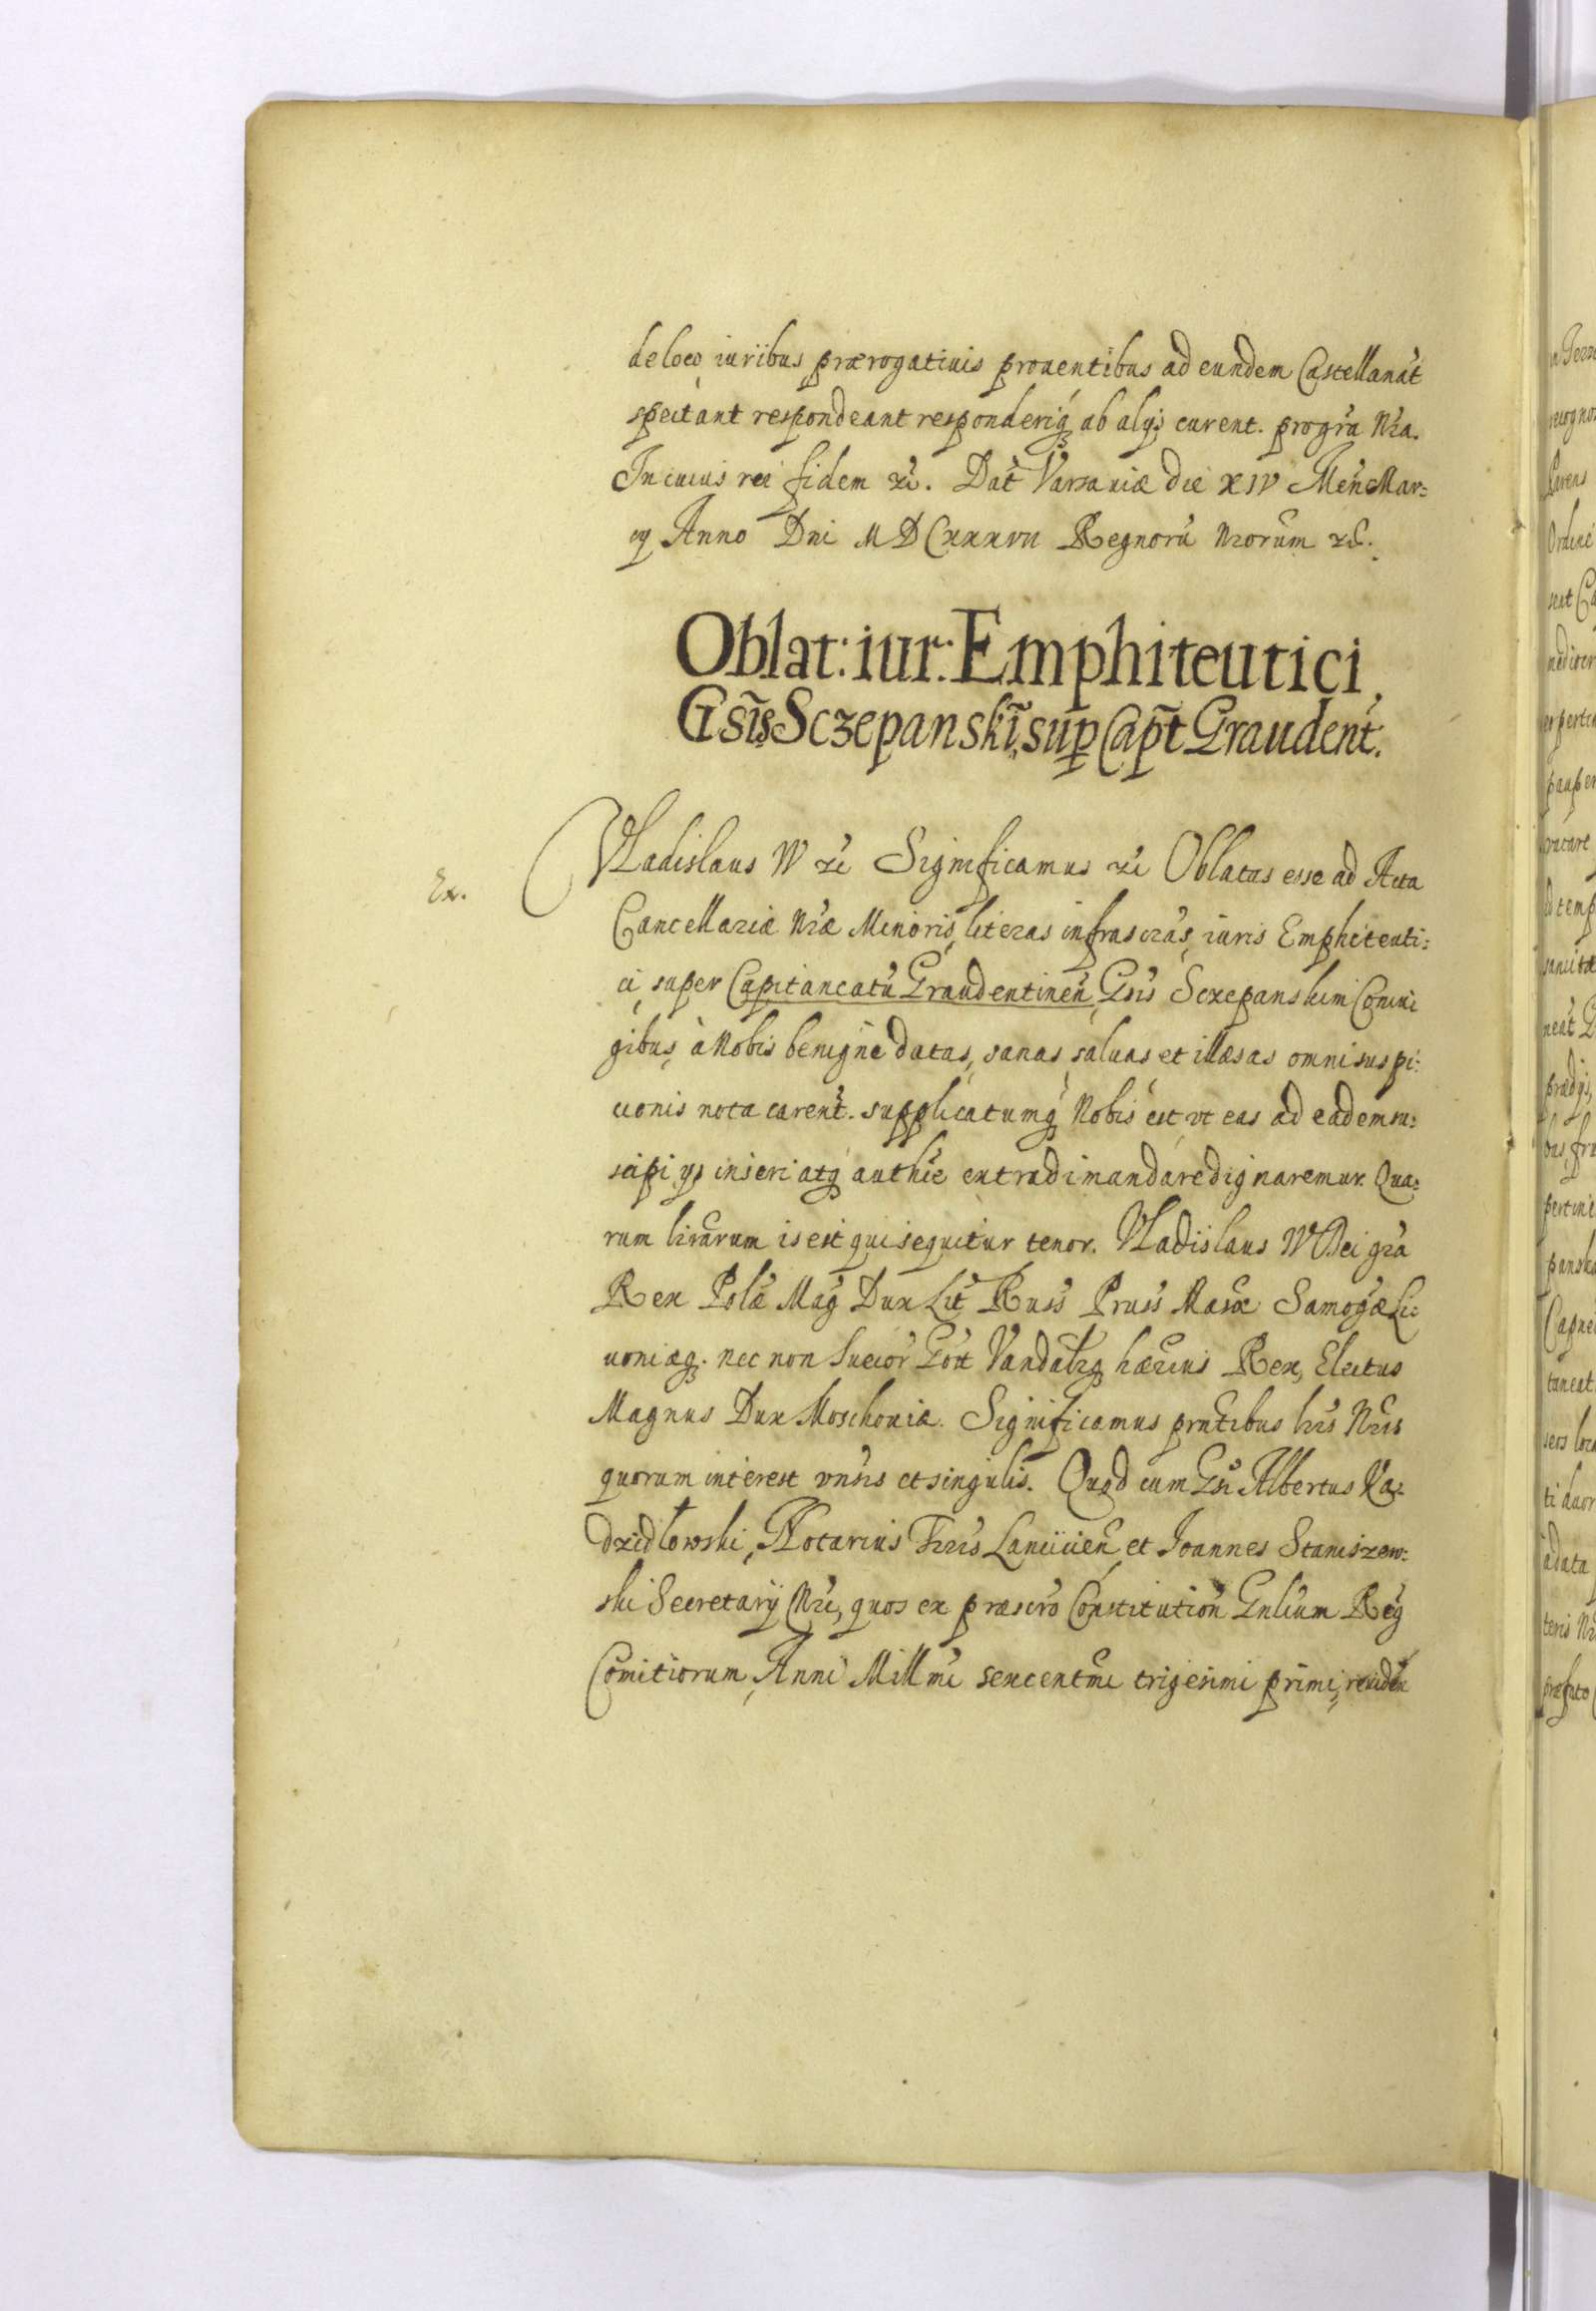 de loco iuribus prærogatiuis prouentibus ad eundem Castellanat̃
spectant respondeant responderiq́ꝫ ab alijs curent. pro gr̃a Nr̃a.
In cuius rei fidem ꝛc̃. Dat̃ Varsauiæ die XIV Men̄ Mar=
cij Anno Dni M D C xxxvii Regnorũ Nr̃orum ꝛc̃.
Oblat: iur: Emphiteutici
Gsĩs Sczepanskĩ, sup̱ Cap̃t Graudent̃.
Ex.
Vladislaus IV ꝛc̃ Significamus ꝛc̃ Oblatas esse ad Acta
Cancellariæ Nr̃æ Minoris literas infrascr̃as, iuris Emphiteuti=
ci super Capitaneatũ Graudentinen̄, Gsĩs Sczepanskim Coniu
gibus à Nobis benignè datas, sanas, saluas et illæsas omni suspi=
cionis nota caren̄t. supplicatumq́ꝫ Nobis est, vt eas ad eadem su=
scipi ijs inseri atqꝫ authẽ extradi mandare dignaremur. Qua=
rum lr̃arum is est qui sequitur tenor. Vladislaus IV Dei gr̃a
Rex Polæ̃ Mag̃ Dux Lit̃ Russ̃ Pruss̃ Masõæ Samog̃æ Li=
uoniæqꝫ. nec non Sueciõr Gõtt Vandal̃rqꝫ hær̃ius Rex, Electus
Magnus Dux Moschouiæ. Significamus pn̄tibus lr̃is Nr̃is
quorum interest vn̄sis et singulis. Quod cum Gsĩ Albertus Ka=
dzidłowski, Notarius Trr̃is Lancicien̄ et Joannes Staniszew=
ski Secretarij Nr̃i, quos ex præscr̃o Constitutioñ Gn̄lium Reg̃
Comitiorum Anni Mill̃mi sexcent̃mi trigesimi primi,